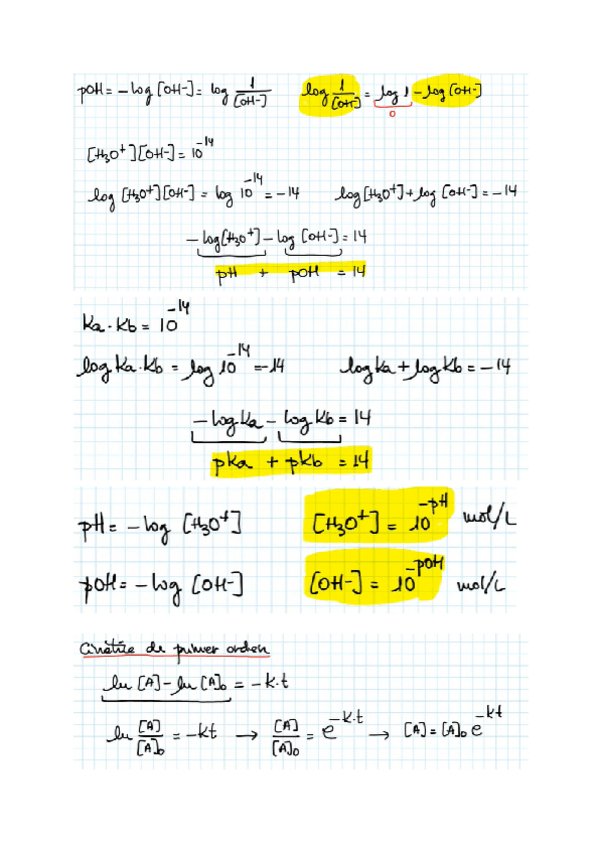 pOH = -log [OH-] = log 1/[OH-]    log 1/[OH-] = log 1 - log [OH-]
0
[H3O+][OH-] = 10^-14
log [H3O+][OH-] = log 10^-14 = -14    log [H3O+] + log [OH-] = -14
-log [H3O+] - log [OH-] = 14
pH + pOH = 14
Ka · Kb = 10^-14
log Ka · Kb = log 10^-14 = -14    log Ka + log Kb = -14
-log Ka - log Kb = 14
pKa + pKb = 14
pH = -log [H3O+]    [H3O+] = 10^-pH mol/L
pOH = -log [OH-]    [OH-] = 10^-pOH mol/L
Cinética de primer orden
ln [A] - ln [A]o = -K·t
ln [A]/[A]o = -Kt → [A]/[A]o = e^-K·t → [A] = [A]o e^-Kt